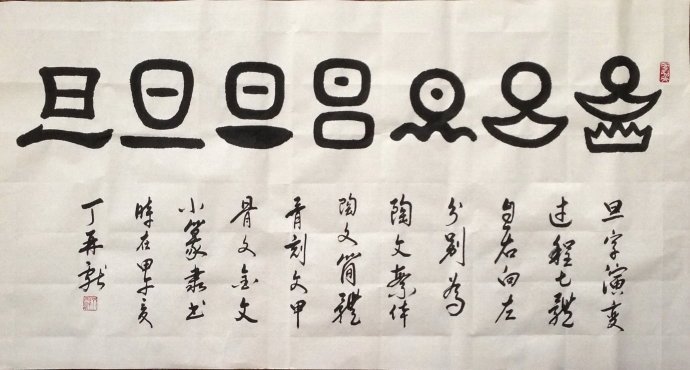 旦旦旦
旦字演变
过程七體
自右向左
分别為
陶文繁体
陶文簡體
骨刻文甲
骨文金文
小篆隶书
時在甲午夏
丁再献